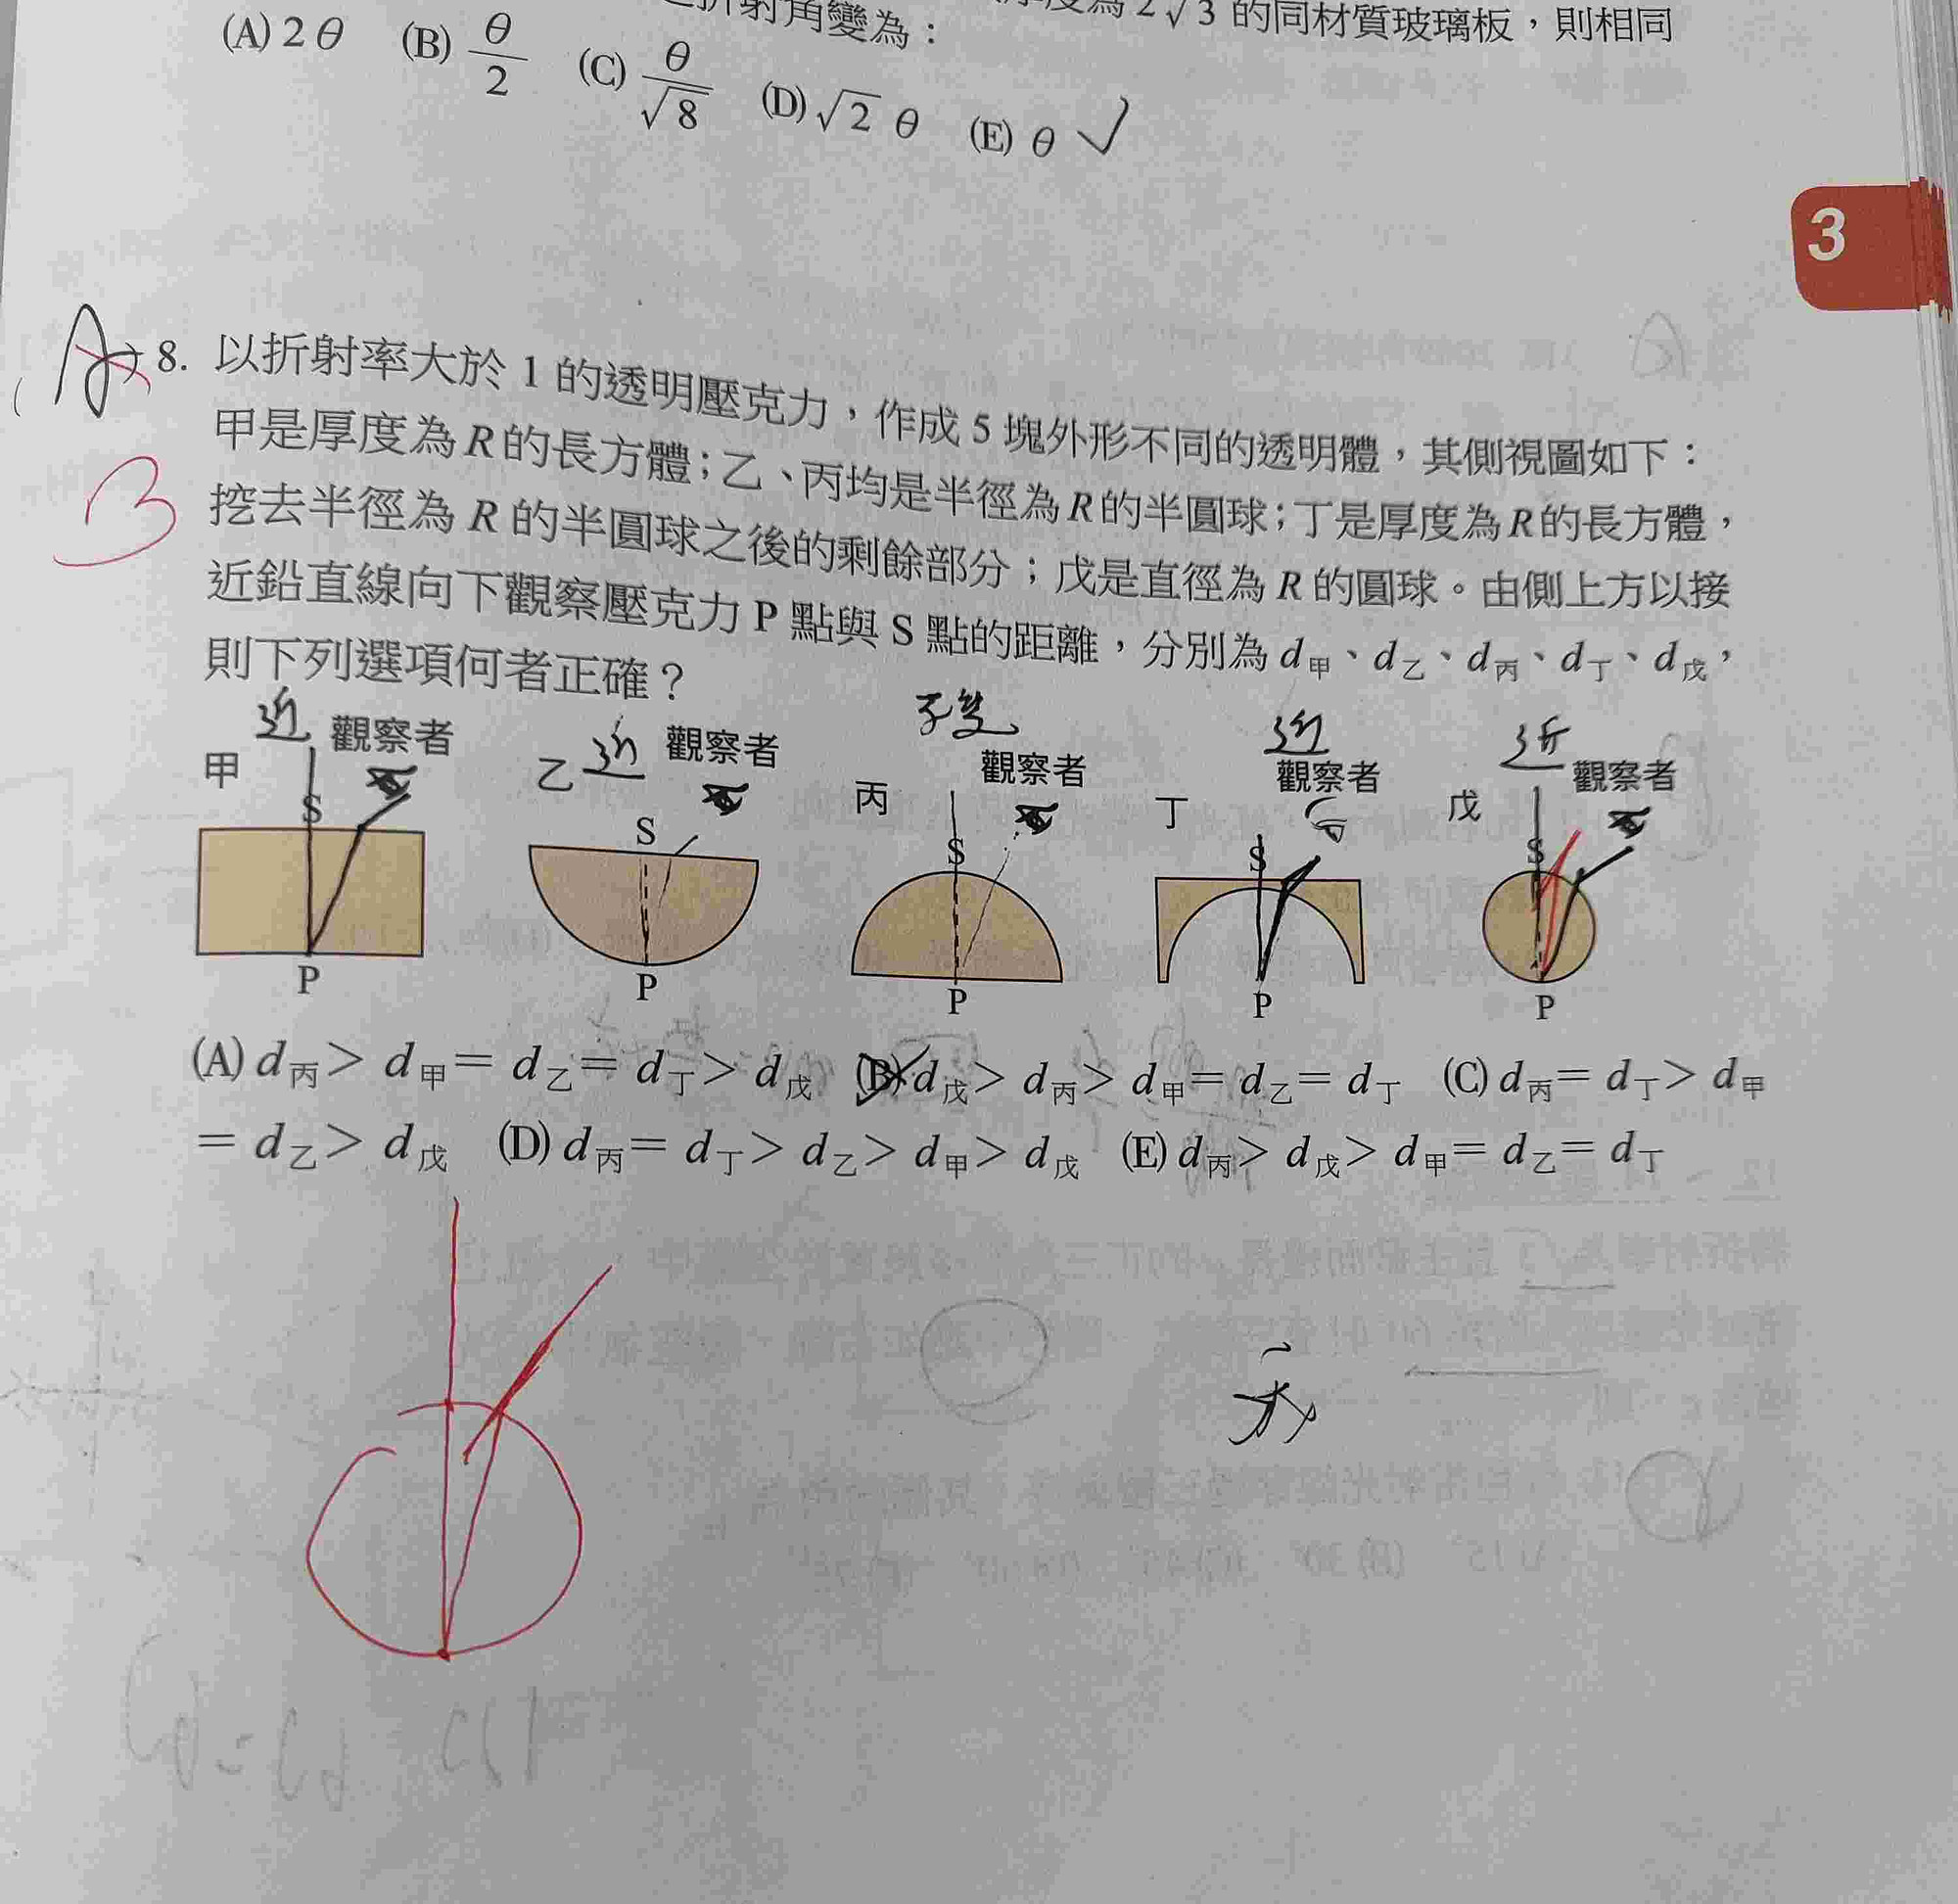 折射角變為：
為 2√3 的同材質玻璃板，則相同
(A) 2θ (B) θ/2 (C) θ/√8 (D) √2 θ (E) θ ✓
3
A
8. 以折射率大於 1 的透明壓克力，作成 5 塊外形不同的透明體，其側視圖如下：
甲是厚度為 R 的長方體；乙、丙均是半徑為 R 的半圓球；丁是厚度為 R 的長方體，
B
挖去半徑為 R 的半圓球之後的剩餘部分；戊是直徑為 R 的圓球。由側上方以接
近鉛直線向下觀察壓克力 P 點與 S 點的距離，分別為 d甲、d乙、d丙、d丁、d戊，
則下列選項何者正確？
近 近 不變 近 近
甲 觀察者 乙 觀察者 丙 觀察者 丁 觀察者 戊 觀察者
S S S S S
P P P P P
(A) d丙＞ d甲＝ d乙＝ d丁＞ d戊 (B) d戊＞ d丙＞ d甲＝ d乙＝ d丁 (C) d丙＝ d丁＞ d甲
＝ d乙＞ d戊 (D) d丙＝ d丁＞ d乙＞ d甲＞ d戊 (E) d丙＞ d戊＞ d甲＝ d乙＝ d丁